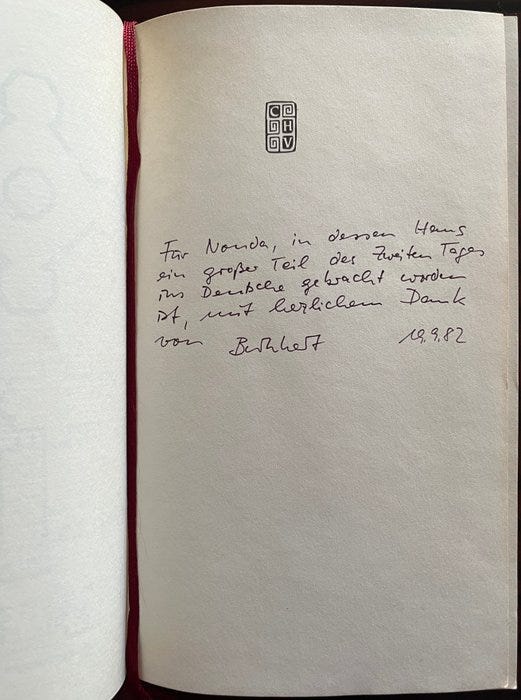 C
H
V
Für Nonda, in dessen Haus
ein großer Teil des Zweiten Tages
ins Deutsche gebracht worden
ist, mit herzlichem Dank
von Burkhart 19.9.82